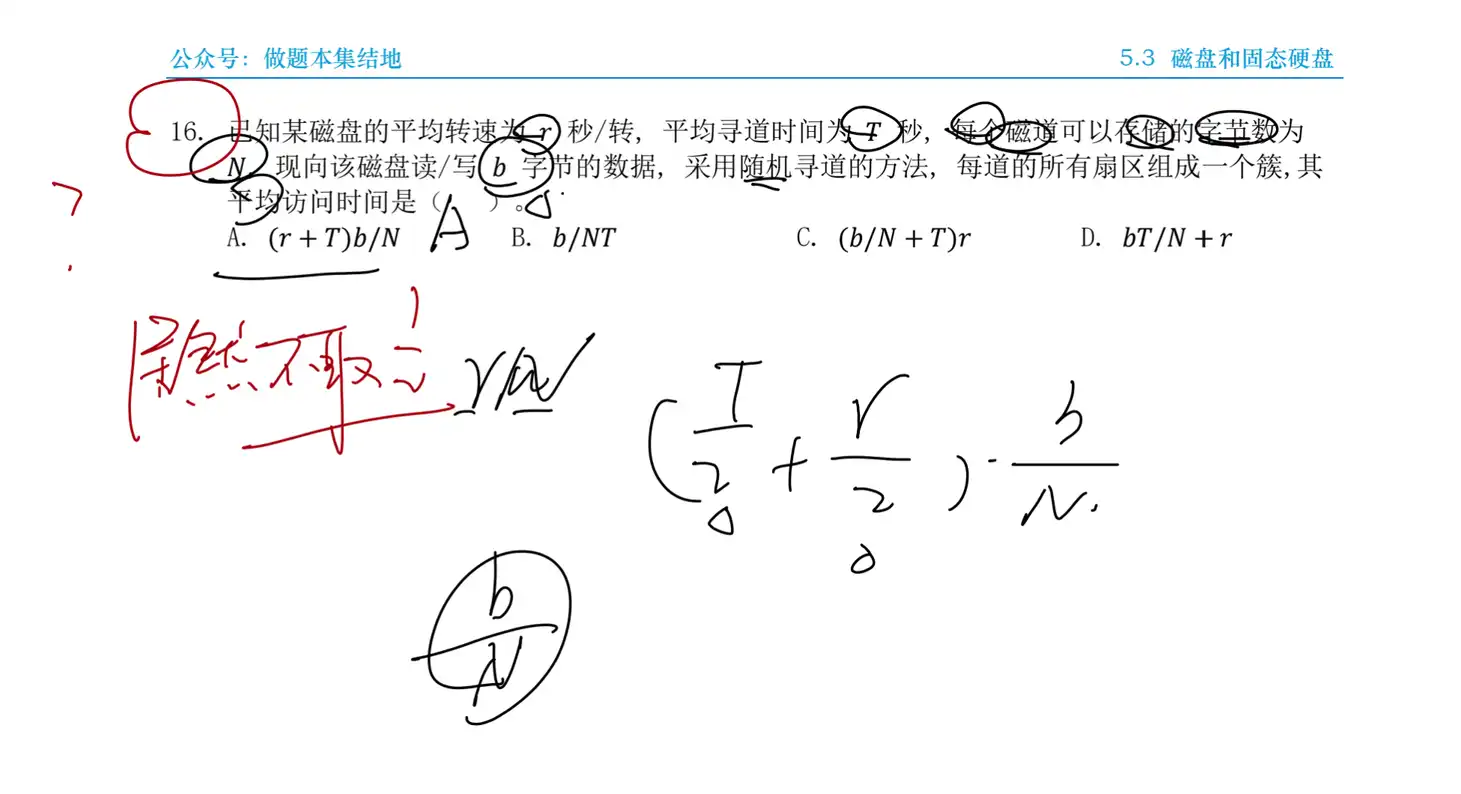 公众号：做题本集结地
5.3 磁盘和固态硬盘
16. 已知某磁盘的平均转速为 r 秒/转，平均寻道时间为 T 秒，每个磁道可以存储的字节数为
N，现向该磁盘读/写 b 字节的数据，采用随机寻道的方法，每道的所有扇区组成一个簇,其
平均访问时间是（ A ）。
A. (r + T)b/N B. b/NT C. (b/N + T)r D. bT/N + r
不取
(T/2 + r/2) · b/N
b/N